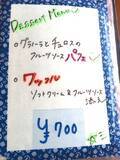 DESSERT MENU
・グラノーラとチュロスの
フルーツソースパフェ
・ワッフル
ソフトクリーム&フルーツソース
添え
¥700